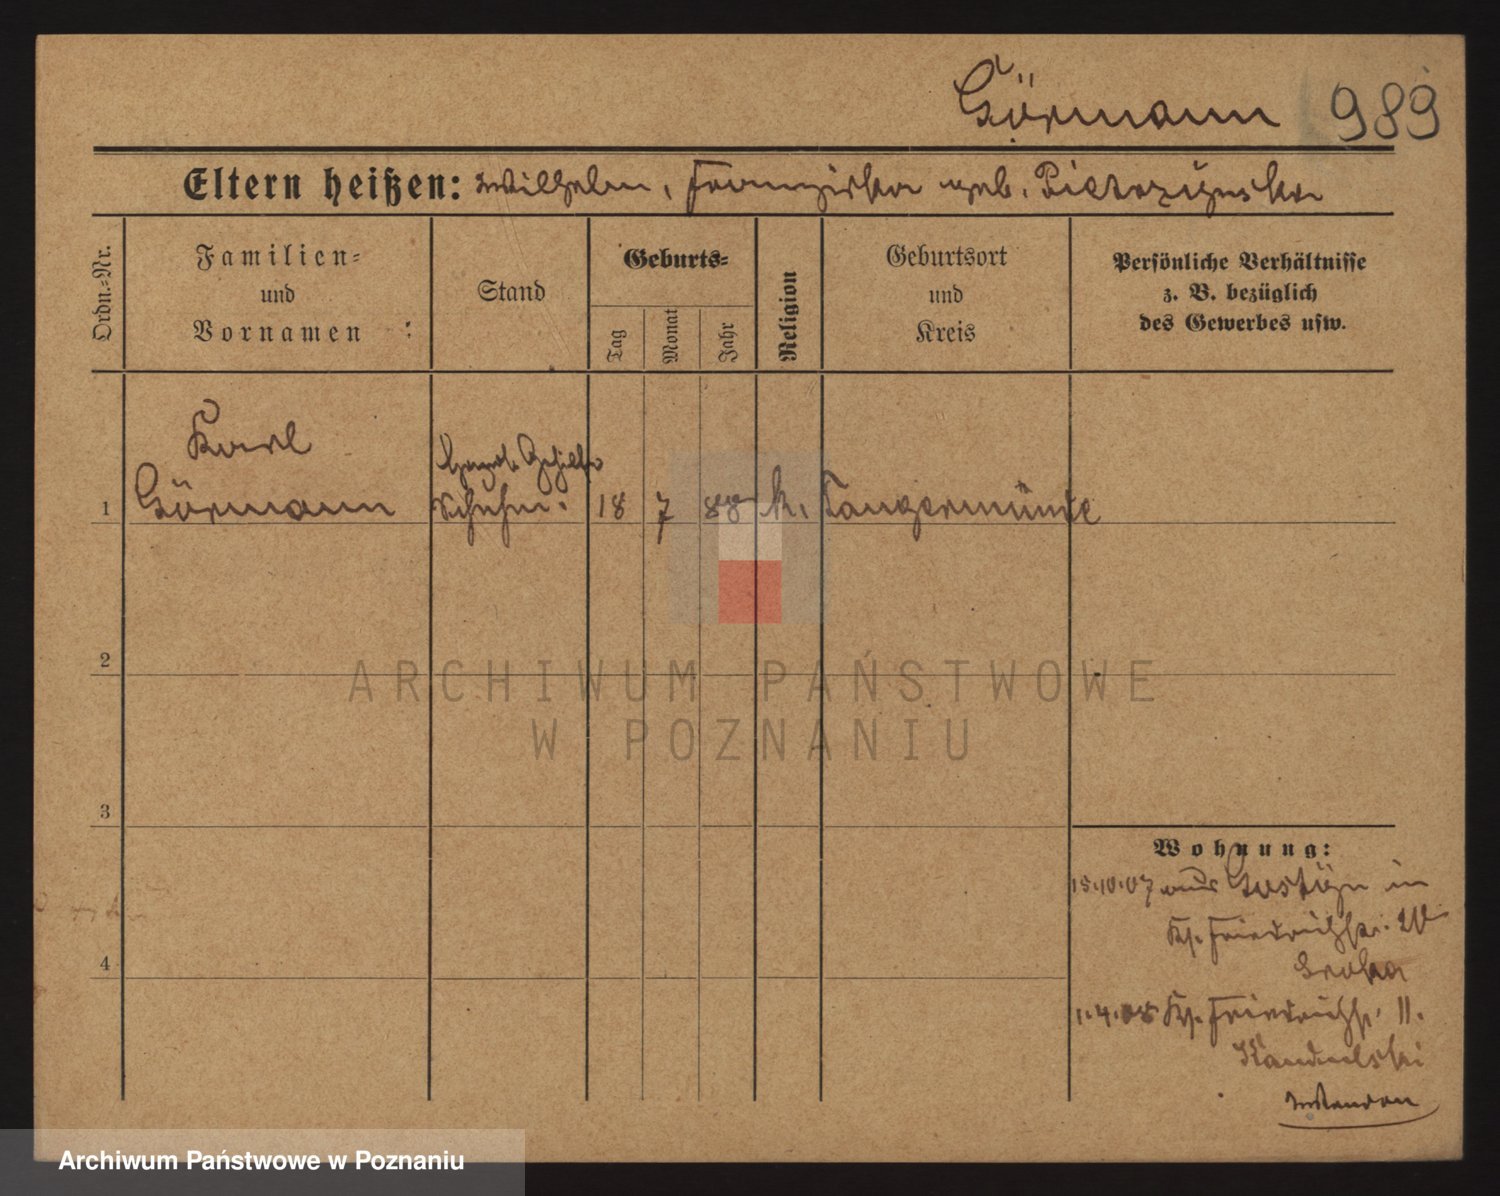 Görmann 989
Eltern heißen: Wilhelm, Franziska geb.
Ordn.-Nr.
Familien-
und
Vornamen :
Stand
Geburts-
Tag
Monat
Jahr
Religion
Geburtsort
und
Kreis
Persönliche Verhältnisse
z. B. bezüglich
des Gewerbes usw.
Karl
1 Görmann
Schuhm. 18 7 88 k. Tangermünde
2
3
4
Wohnung:
15.10.07 aus Gostyn in
Friedrichstr.
1.4.08 Friedrichstr. 11.
ARCHIWUM PAŃSTWOWE
W POZNANIU
Archiwum Państwowe w Poznaniu